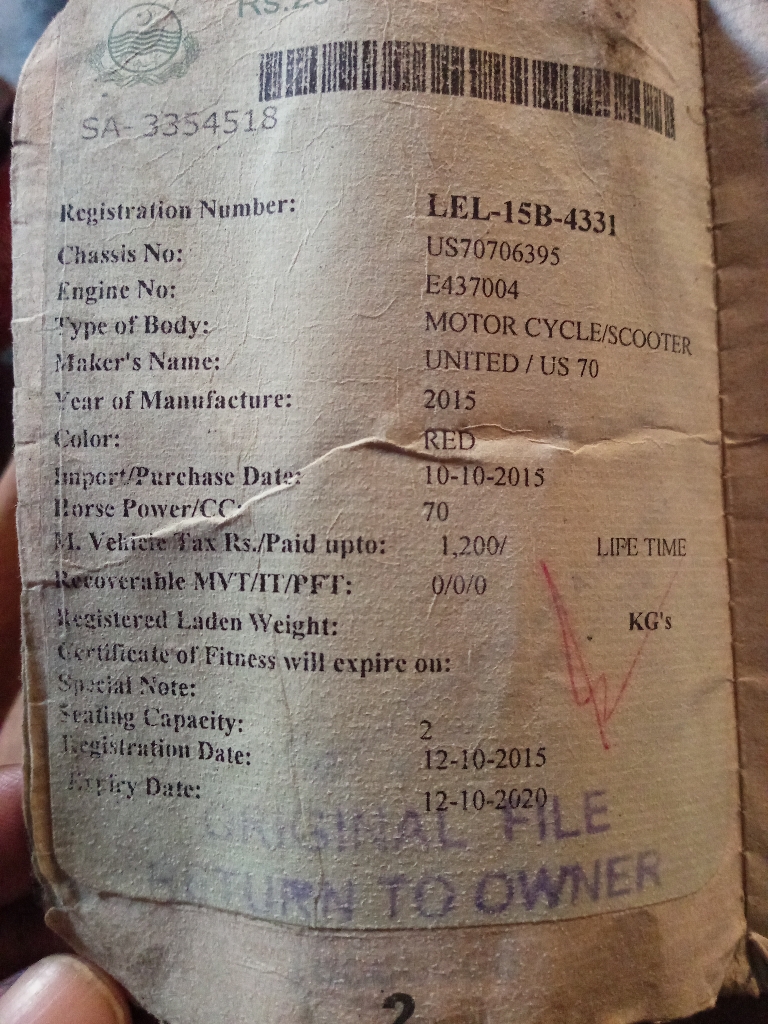 Rs.20
SA-3354518
Registration Number: LEL-15B-4331
Chassis No: US70706395
Engine No: E437004
Type of Body: MOTOR CYCLE/SCOOTER
Maker's Name: UNITED / US 70
Year of Manufacture: 2015
Color: RED
Import/Purchase Date: 10-10-2015
Horse Power/CC: 70
M. Vehicle Tax Rs./Paid upto: 1,200/ LIFE TIME
Recoverable MVT/IT/PFT: 0/0/0
Registered Laden Weight: KG's
Certificate of Fitness will expire on:
Special Note:
Seating Capacity: 2
Registration Date: 12-10-2015
Expiry Date: 12-10-2020
ORIGINAL FILE
RETURN TO OWNER
2